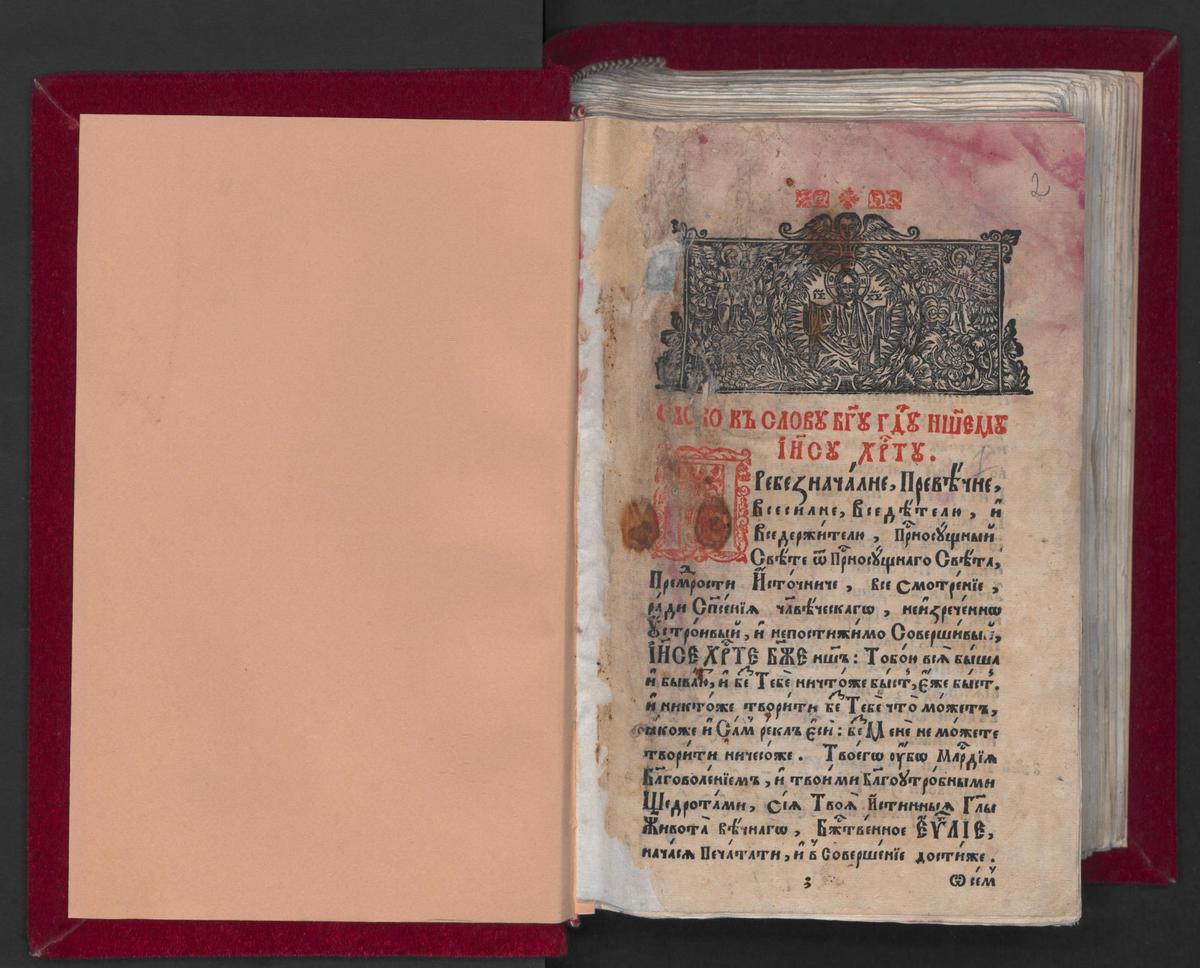 2
ІС ХС
Слово къ слову бг҃у гд҃у нш҃ему
Іи҃су хр҃ту.
Ребезнача́лне, Превѣ́чне,
Всеси́лне, Вседѣ́телю, и҆
Вседержи́телю, Прⷭ҇носу́щный
Свѣ́те ѿ Прⷭ҇носу́щнаго Свѣ́та,
Премⷣрости И҆сто́чниче, все смотре́нїе,
ра́ди Спⷭ҇е́нїѧ чл҃вѣ́ческагѡ, неи҆зрече́ннѡ
Ꙋ҆стро́ивый, и҆ непостижи́мо Соверши́вый,
ІИ҃СЕ ХРⷭ҇ТЕ БЖ҃Е нш҃ъ: Тобо́и всѧ̀ бы́ша
и҆ быва́ю, и҆ беⷥ Тебє̀ ничто́же бы́стъ, є҆́же бы́стъ.
и҆ никто́же твори́ти беⷥ Тебє̀ что̀ мо́жетъ,
ꙗ҆́коже и҆ Са́мъ ре́клъ є҆сѝ: беⷥ Менє̀ не мо́жете
твори́ти ничесо́же. Твоегѡ̀ ᲂу҆́бѡ Млⷭ҇рдїѧ
Бл҃говоле́нїемъ, и҆ твои́ми Бл҃гоутро́бными
Щедро́тами, сїѧ̑ Твоѧ̑ И҆́стинныѧ Гл҃ы
Живота̀ вѣ́чнагѡ, Бж҃тве́нное Є҆Ѵ҃ЛІЕ,
нача́сѧ Печа́тати, и҆ в̾ Соверше́нїе дости́же.
з
Ѡ се́мъ